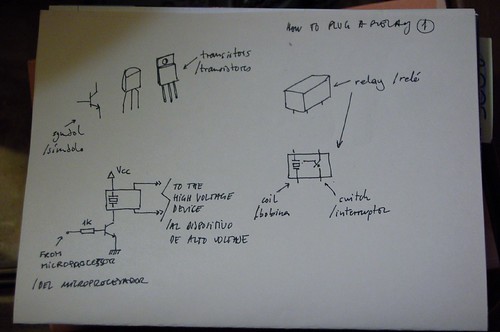 HOW TO PLUG A RELAY 1
transistors
/transistores
symbol
/símbolo
relay /relé
coil
/bobina
switch
/interruptor
Vcc
1K
TO THE
HIGH VOLTAGE
DEVICE
/AL DISPOSITIVO
DE ALTO VOLTAJE
FROM
MICROPROCESSOR
/DEL MICROPROCESADOR